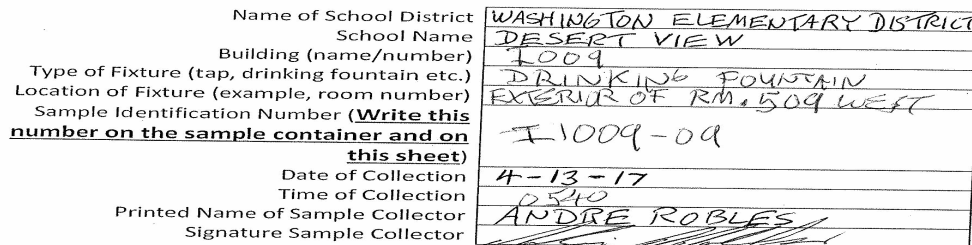 Name of School District WASHINGTON ELEMENTARY DISTRICT
School Name DESERT VIEW
Building (name/number) 1009
Type of Fixture (tap, drinking fountain etc.) DRINKING FOUNTAIN
Location of Fixture (example, room number) EXTERIOR OF RM. 509 WEST
Sample Identification Number (Write this
number on the sample container and on
this sheet) I1009-09
Date of Collection 4-13-17
Time of Collection 0540
Printed Name of Sample Collector ANDRE ROBLES
Signature Sample Collector